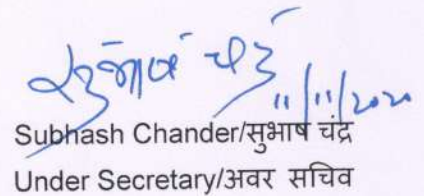 सुभाष चंद्र
11/11/2020
Subhash Chander/सुभाष चंद्र
Under Secretary/अवर सचिव